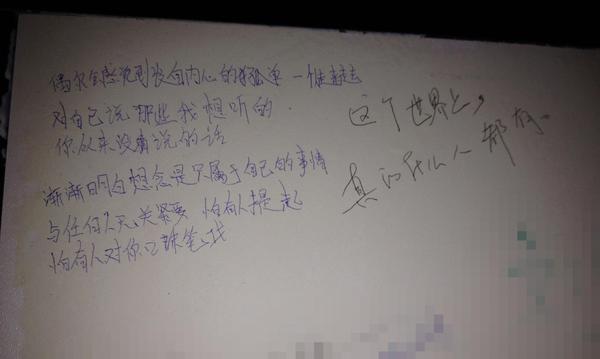 偶尔会感觉到发自内心的孤单 一个人走去
对自己说 那些我想听的
你从来没有说的话
渐渐明白想念是只属于自己的事情
与任何人无关紧要 怕有人提起
怕有人对你口诛笔伐
这个世界上,
真的什么人都有.